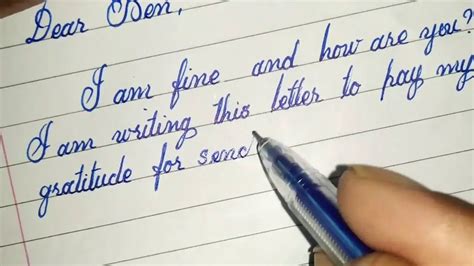 Dear Ben,
I am fine and how are you?
I am writing this letter to pay my
gratitude for send